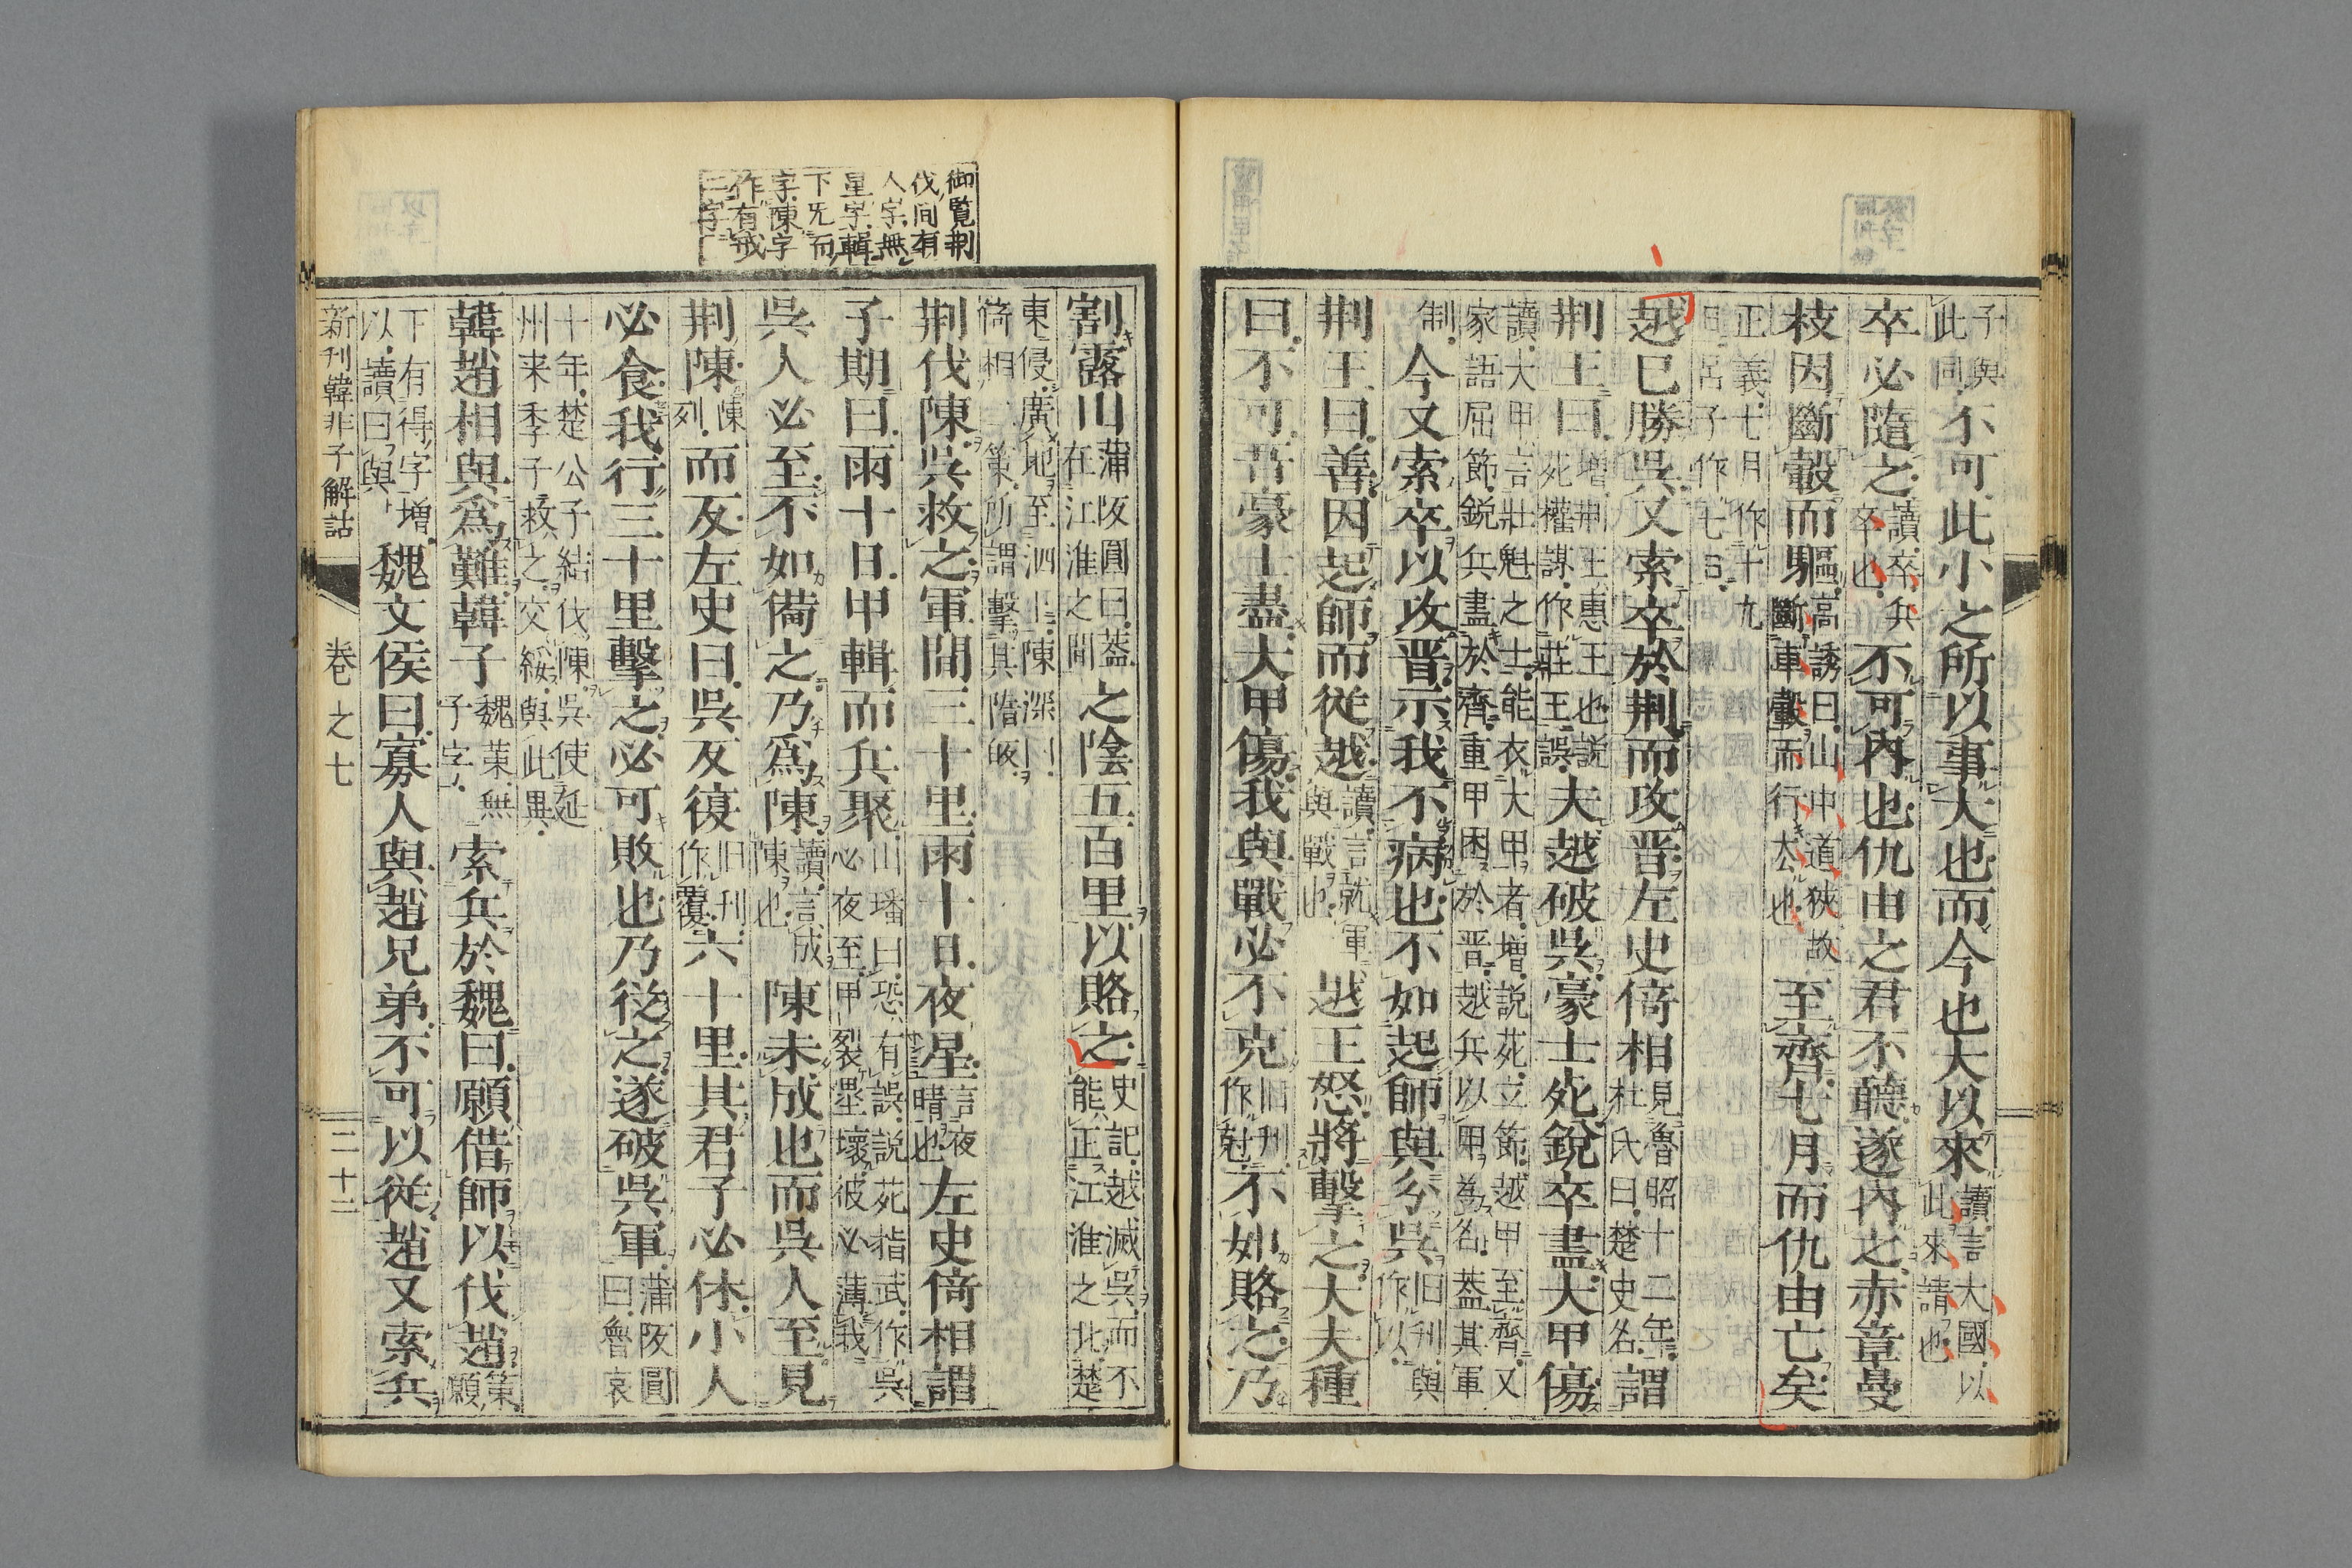 子與
此同
不可此小之所以事大也而今也大以來
讀言大國以
此來請也
卒必隨之
讀卒兵
卒也
不可內也仇由之君不聽遂內之赤章曼
枝因斷轂而驅
高誘曰山中道狹故
斷車轂而行去也
至齊七月而仇由亡矣
正義七月作十九
日呂子作七日
越已勝吳又索卒於荆而攻晋左史倚相
見魯昭十二年
杜氏曰楚史名
謂
荆王曰
增荆王惠王也説
苑權謀作莊王誤
夫越破吳豪士死銳卒盡大甲傷
讀大甲言壯魁之士能衣大甲者增説苑立節越甲至齊又
家語屈節銳兵盡於齊重甲困於晋越兵以甲為名蓋其軍
制
今又索卒以攻晋示我不病也不如起師與分吳
旧刊與
作以
荆王曰善因起師而從越
讀言就軍
與戰也
越王怒將擊之大夫種
曰不可吾豪士盡大甲傷我與戰必不克
旧刊
作尅
不如賂之乃
御覧荆
伐間有
人字無
星字輯
下旡而
字陳字
作有戒
二字
割露山
蒲阪圓曰蓋
在江淮之間
之陰五百里以賂之
史記越滅吳而不
能正江淮之北楚
東侵廣地至泗上陳深曰
倚相二策所謂擊其隋皈
荆伐陳吳救之軍間三十里雨十日夜星
言夜
晴也
左史倚相謂
子期曰雨十日甲輯而兵聚
山墦曰恐有誤説苑指武作吳
必夜至甲裂壘壞彼必薄我
吳人必至不如備之乃為陳
讀言成
陳也
陳未成也而吳人至見
荆陳
陳
列
而反左史曰吳反復
旧刊
作覆
六十里其君子必休小人
必食我行三十里擊之必可敗也乃從之遂破吳軍
蒲阪圓
曰魯哀
十年楚公子結伐陳吳使延
州来季子救之交綏與此異
韓趙相與為難韓子
魏策無
子字
索兵於魏曰願借師以伐趙
策
願
下有得字增
以讀曰與
魏文侯曰寡人與趙兄弟不可以從趙又索兵
新刊韓非子解詁　卷之七　二十二